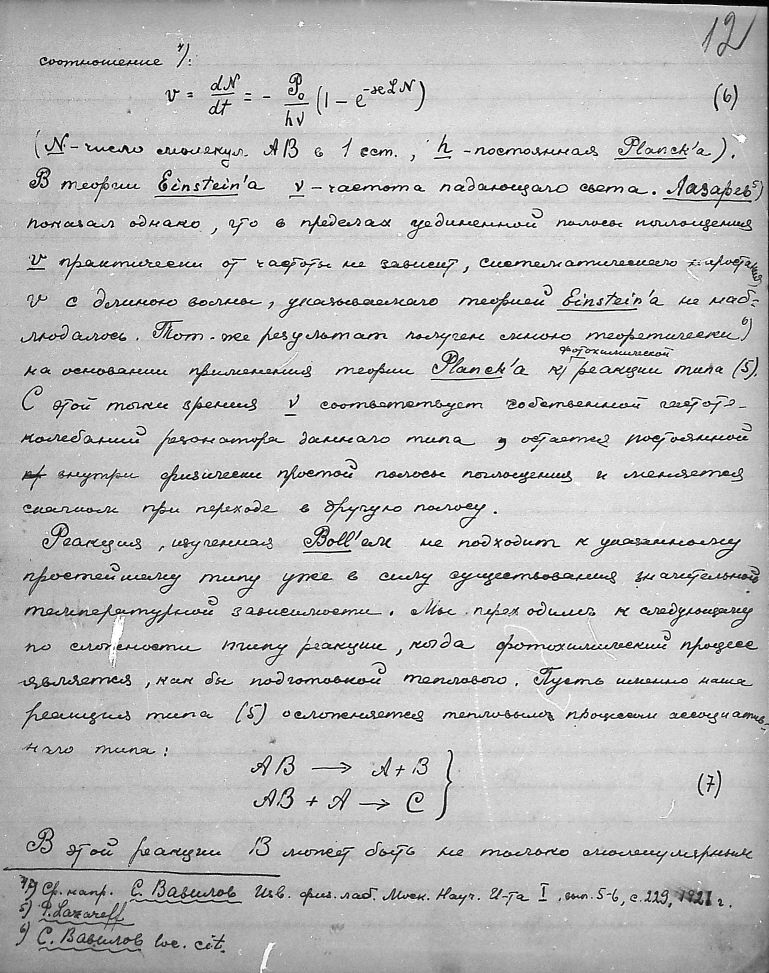 12
соотношение 4):
v = dN/dt = - P₀/hν (1 - e^-ϰLN) (6)
(N - число молекул AB в 1 сст., h - постоянная Planck'а).
В теории Einstein'а ν - частота падающаго света. Лазарев 5)
показал однако, что в пределах уединенной полосы поглощения
v практически от частоты не зависит, систематическаго
v с длиною волны, указываемаго теорией Einstein'а не наб-
людалось. Тот-же результат получен мною теоретически 6)
на основании применения теории Planck'а к фотохимической реакции типа (5).
С этой точки зрения ν соответствует собственной частоте
колебаний резонатора даннаго типа, остается постоянной
внутри физически простой полосы поглощения и меняется
скачком при переходе в другую полосу.
Реакция, изученная Boll'ем не подходит к указанному
простейшему типу уже в силу существования значительной
температурной зависимости. Мы переходимъ к следующему
по сложности типу реакции, когда фотохимический процесс
является, как бы подготовкой теплового. Пусть именно наша
реакция типа (5) осложняется тепловымъ процессом ассоциатив-
наго типа:
AB → A+B
AB + A → C } (7)
В этой реакции B может быть не только молекулярным
4) Ср. напр. С. Вавилов Изв. физ. лаб. Моск. Науч. И-та I, вып. 5-6, с. 229, 1921 г.
5) P. Lazareff
6) С. Вавилов loc. cit.